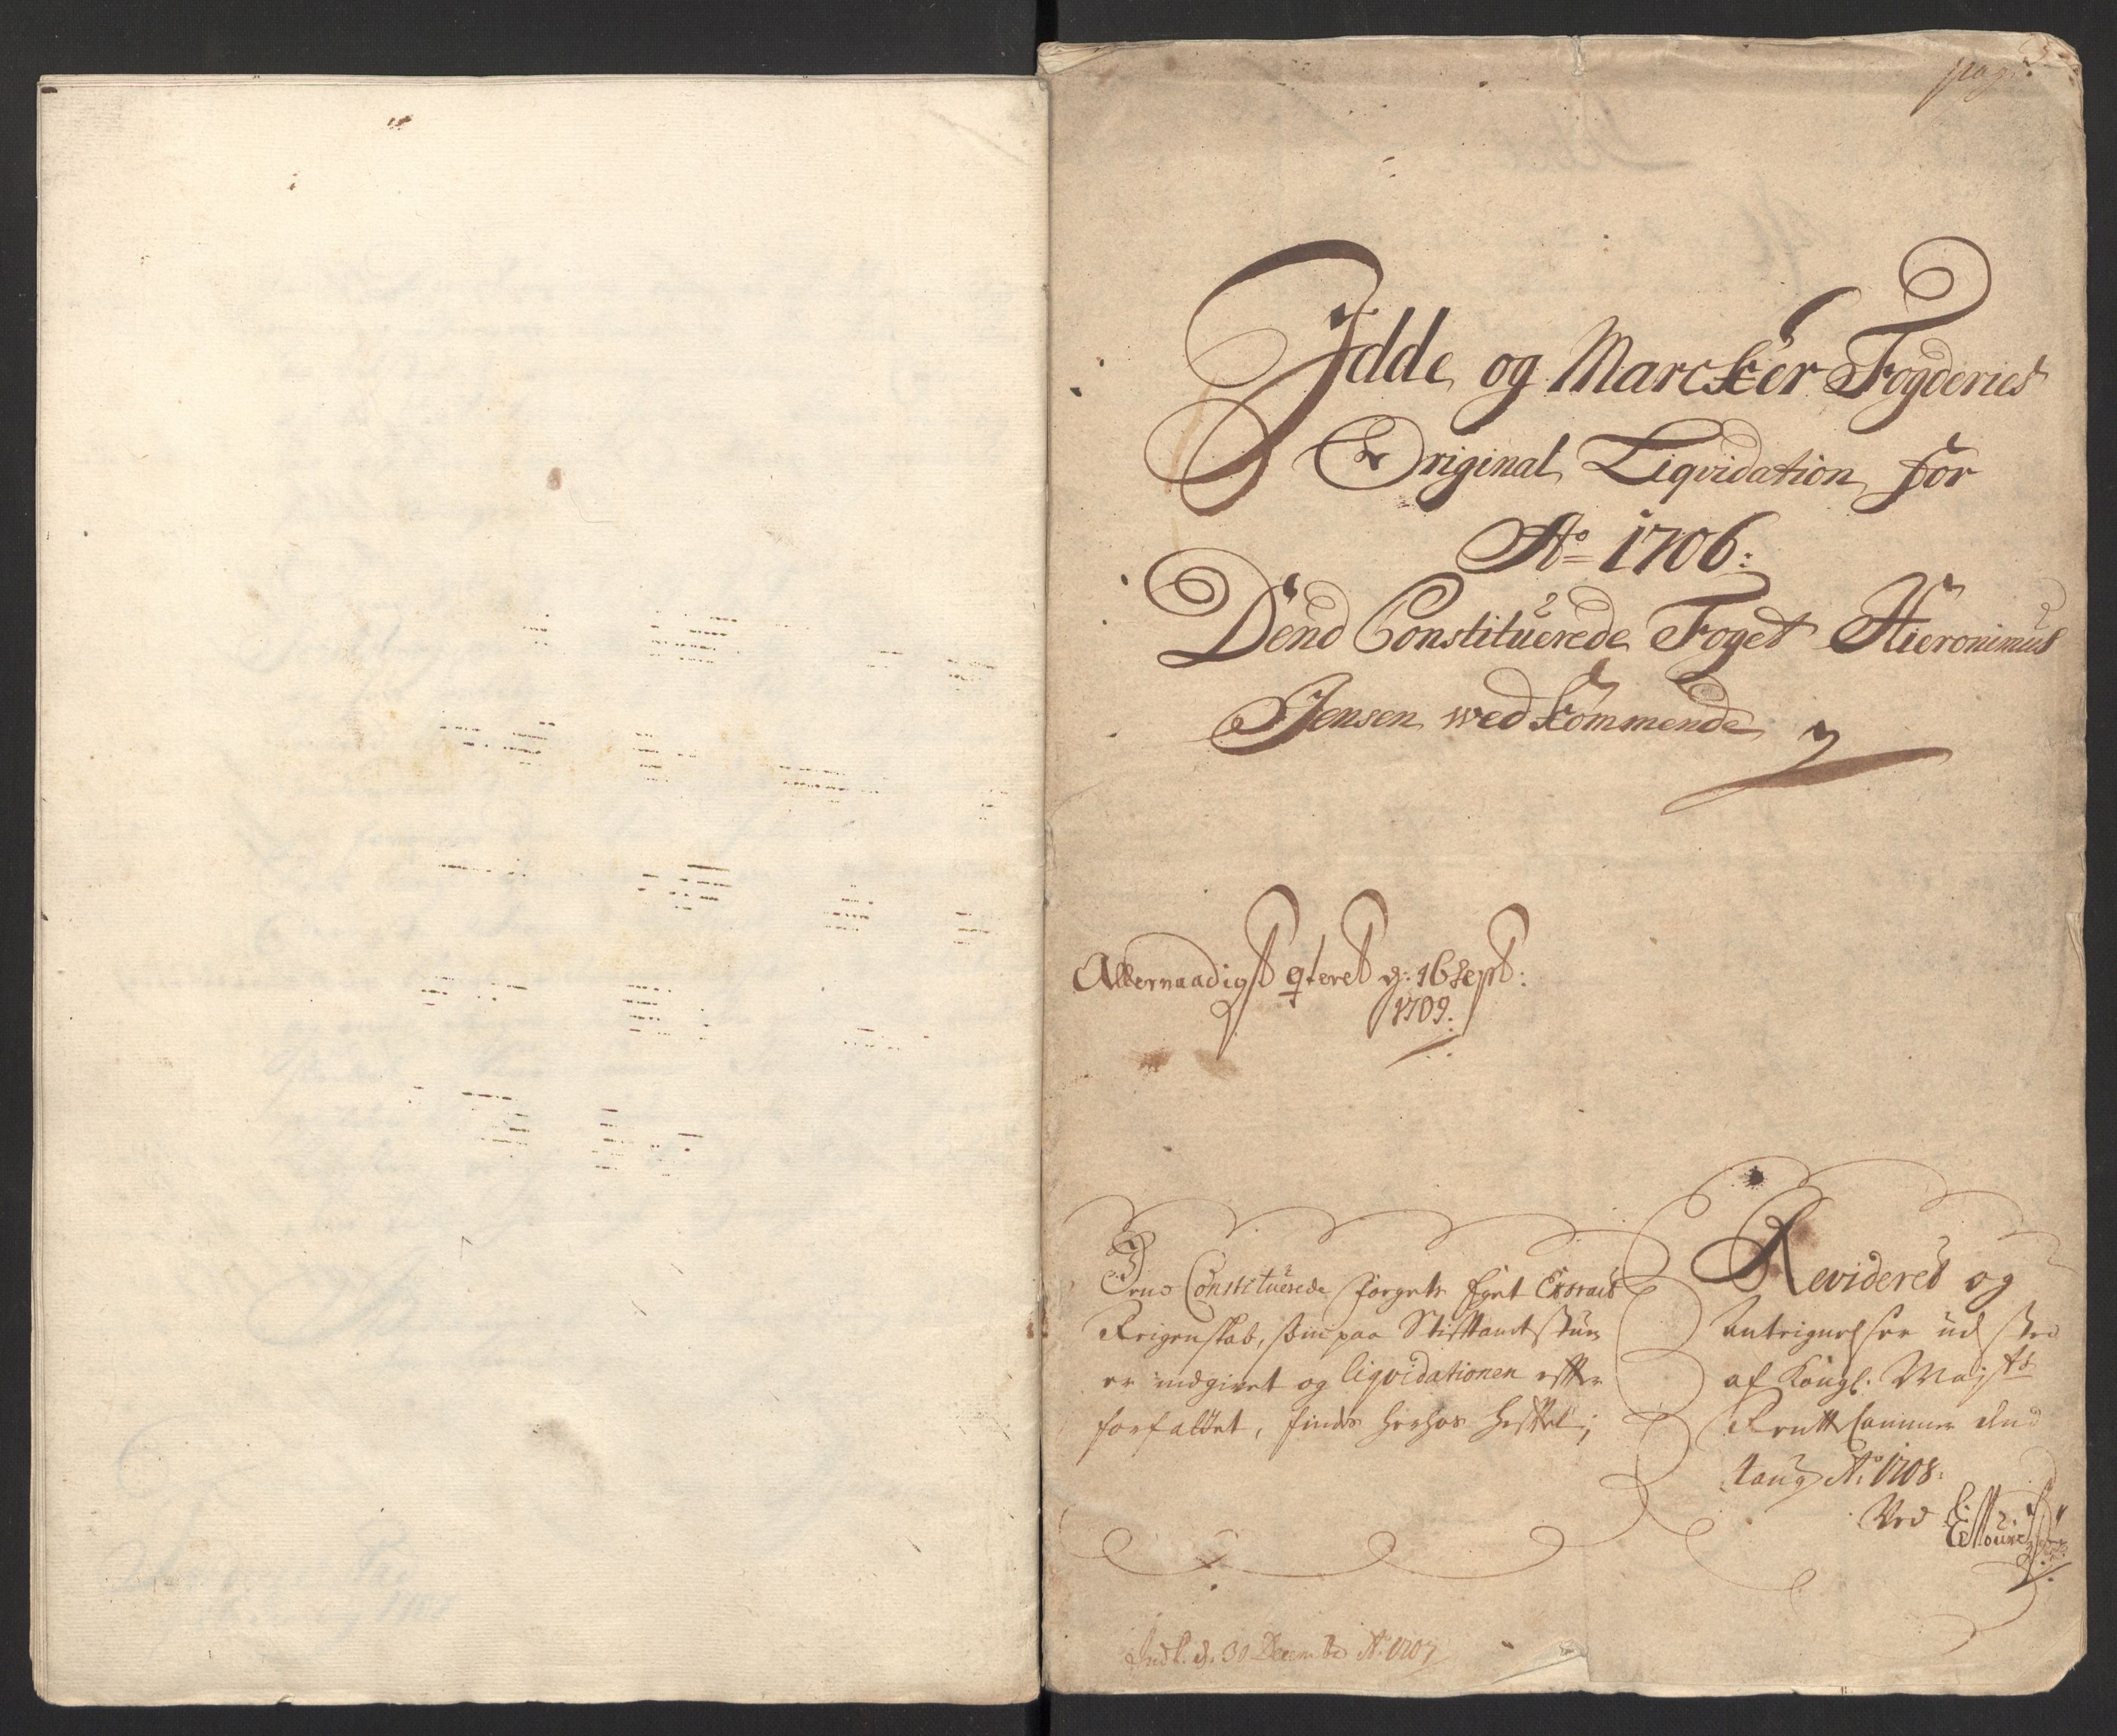 pag:
Idde og Marcker Fogderies
Original Liqvidation for
Ao 1706:
Dend Constituerede Foget Hieronimus
Jensen wedkommende
Allernaadigst qteret d: 16 Sept:
1709.
Dend Constituerede fogets Eget Extract
Reigenskab, som paa Stiftamtstuen
er indgivet og liqvidationen efter
forfattet, findes herhos heftet;
Revideret og
Antegnelser ud sted
af Kongl. Majsts
Rentte Cammer dend
4 aug Ao 1708.
Ved
Indl. d. 30 Decembr Ao 1707